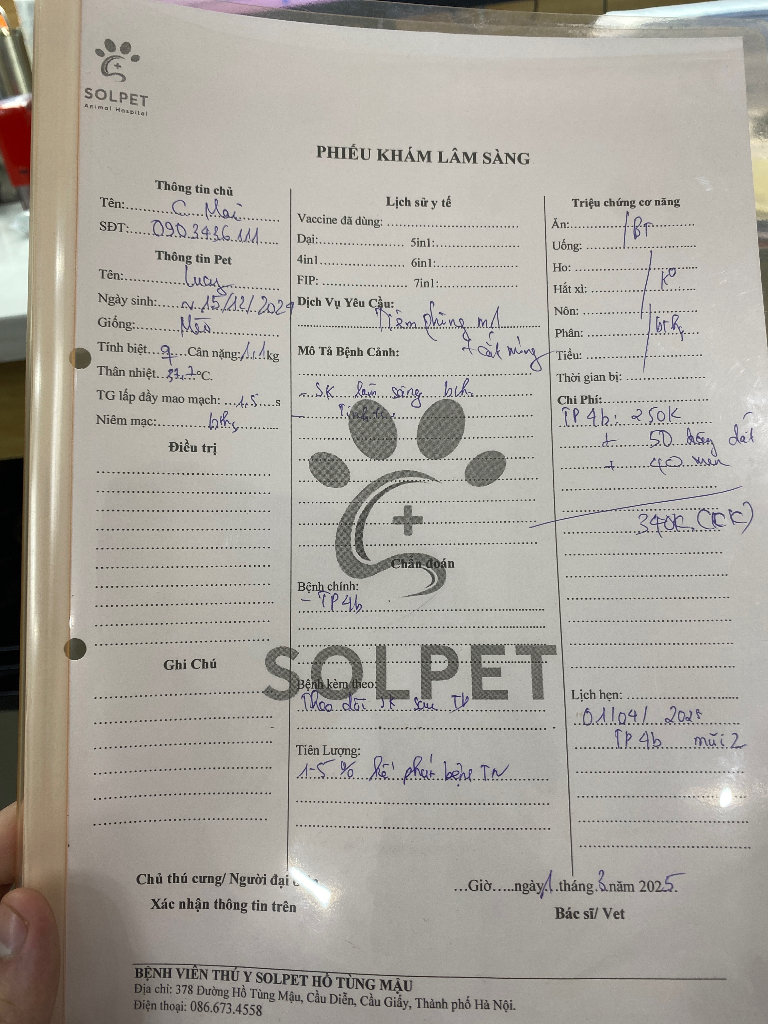 SOLPET
Animal Hospital
PHIẾU KHÁM LÂM SÀNG
Thông tin chủ
Tên: C Mai
SĐT: 090.3436.111
Thông tin Pet
Tên: Lucy
Ngày sinh: ~ 15/12/2024
Giống: Mèo
Tính biệt ♀ Cân nặng: 1,1 kg
Thân nhiệt 37.7 °C.
TG lấp đầy mao mạch: 1,5 s
Niêm mạc: bth
Điều trị
Ghi Chú
Lịch sử y tế
Vaccine đã dùng:
Dại: 5in1:
4in1 6in1:
FIP: 7in1:
Dịch Vụ Yêu Cầu:
Tiêm phòng m1
+ cắt móng
Mô Tả Bệnh Cảnh:
- SK lâm sàng bth
Chẩn đoán
Bệnh chính:
- TP 4b
SOLPET
Bệnh kèm theo:
Theo dõi SK sau
Tiên Lượng:
1-5% phát bệnh TN
Triệu chứng cơ năng
Ăn: BT
Uống:
Ho: K°
Hắt xì:
Nôn:
Phân:
Tiểu:
Thời gian bị:
Chi Phí:
TP 4b: 250K
+ 50
+ 40
340K (CK)
Lịch hẹn:
01/04/2025
TP 4b mũi 2
Chủ thú cưng/ Người đại
Xác nhận thông tin trên
...Giờ.....ngày 1 tháng 3 năm 2025
Bác sĩ/ Vet
BỆNH VIỆN THÚ Y SOLPET HỒ TÙNG MẬU
Địa chỉ: 378 Đường Hồ Tùng Mậu, Cầu Diễn, Cầu Giấy, Thành phố Hà Nội.
Điện thoại: 086.673.4558